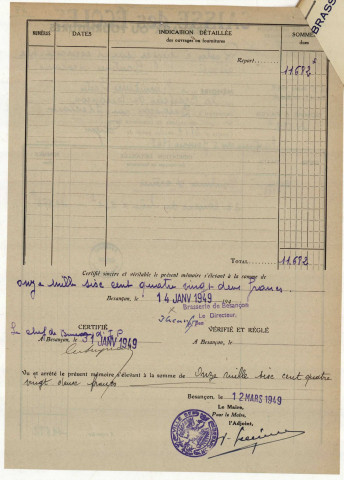 BRASS
NUMÉROS
DATES
INDICATION DÉTAILLÉE
des ouvrages ou fournitures
SOMMES
dues
Report
11.682
TOTAL
11.682
Certifié sincère et véritable le présent mémoire s'élevant à la somme de
onze mille six cent quatre vingt deux francs.
Besançon, le 14 JANV 1949 194
Brasserie de Besançon
Le Directeur,
CERTIFIÉ
VÉRIFIÉ ET RÉGLÉ
Le chef de Bureau
A Besançon, le 31 JANV 1949
A Besançon, le
Vu et arrêté le présent mémoire s'élevant à la somme de Onze mille six cent quatre
vingt deux francs
Besançon, le 12 MARS 1949
Le Maire,
Pour le Maire,
l'Adjoint,